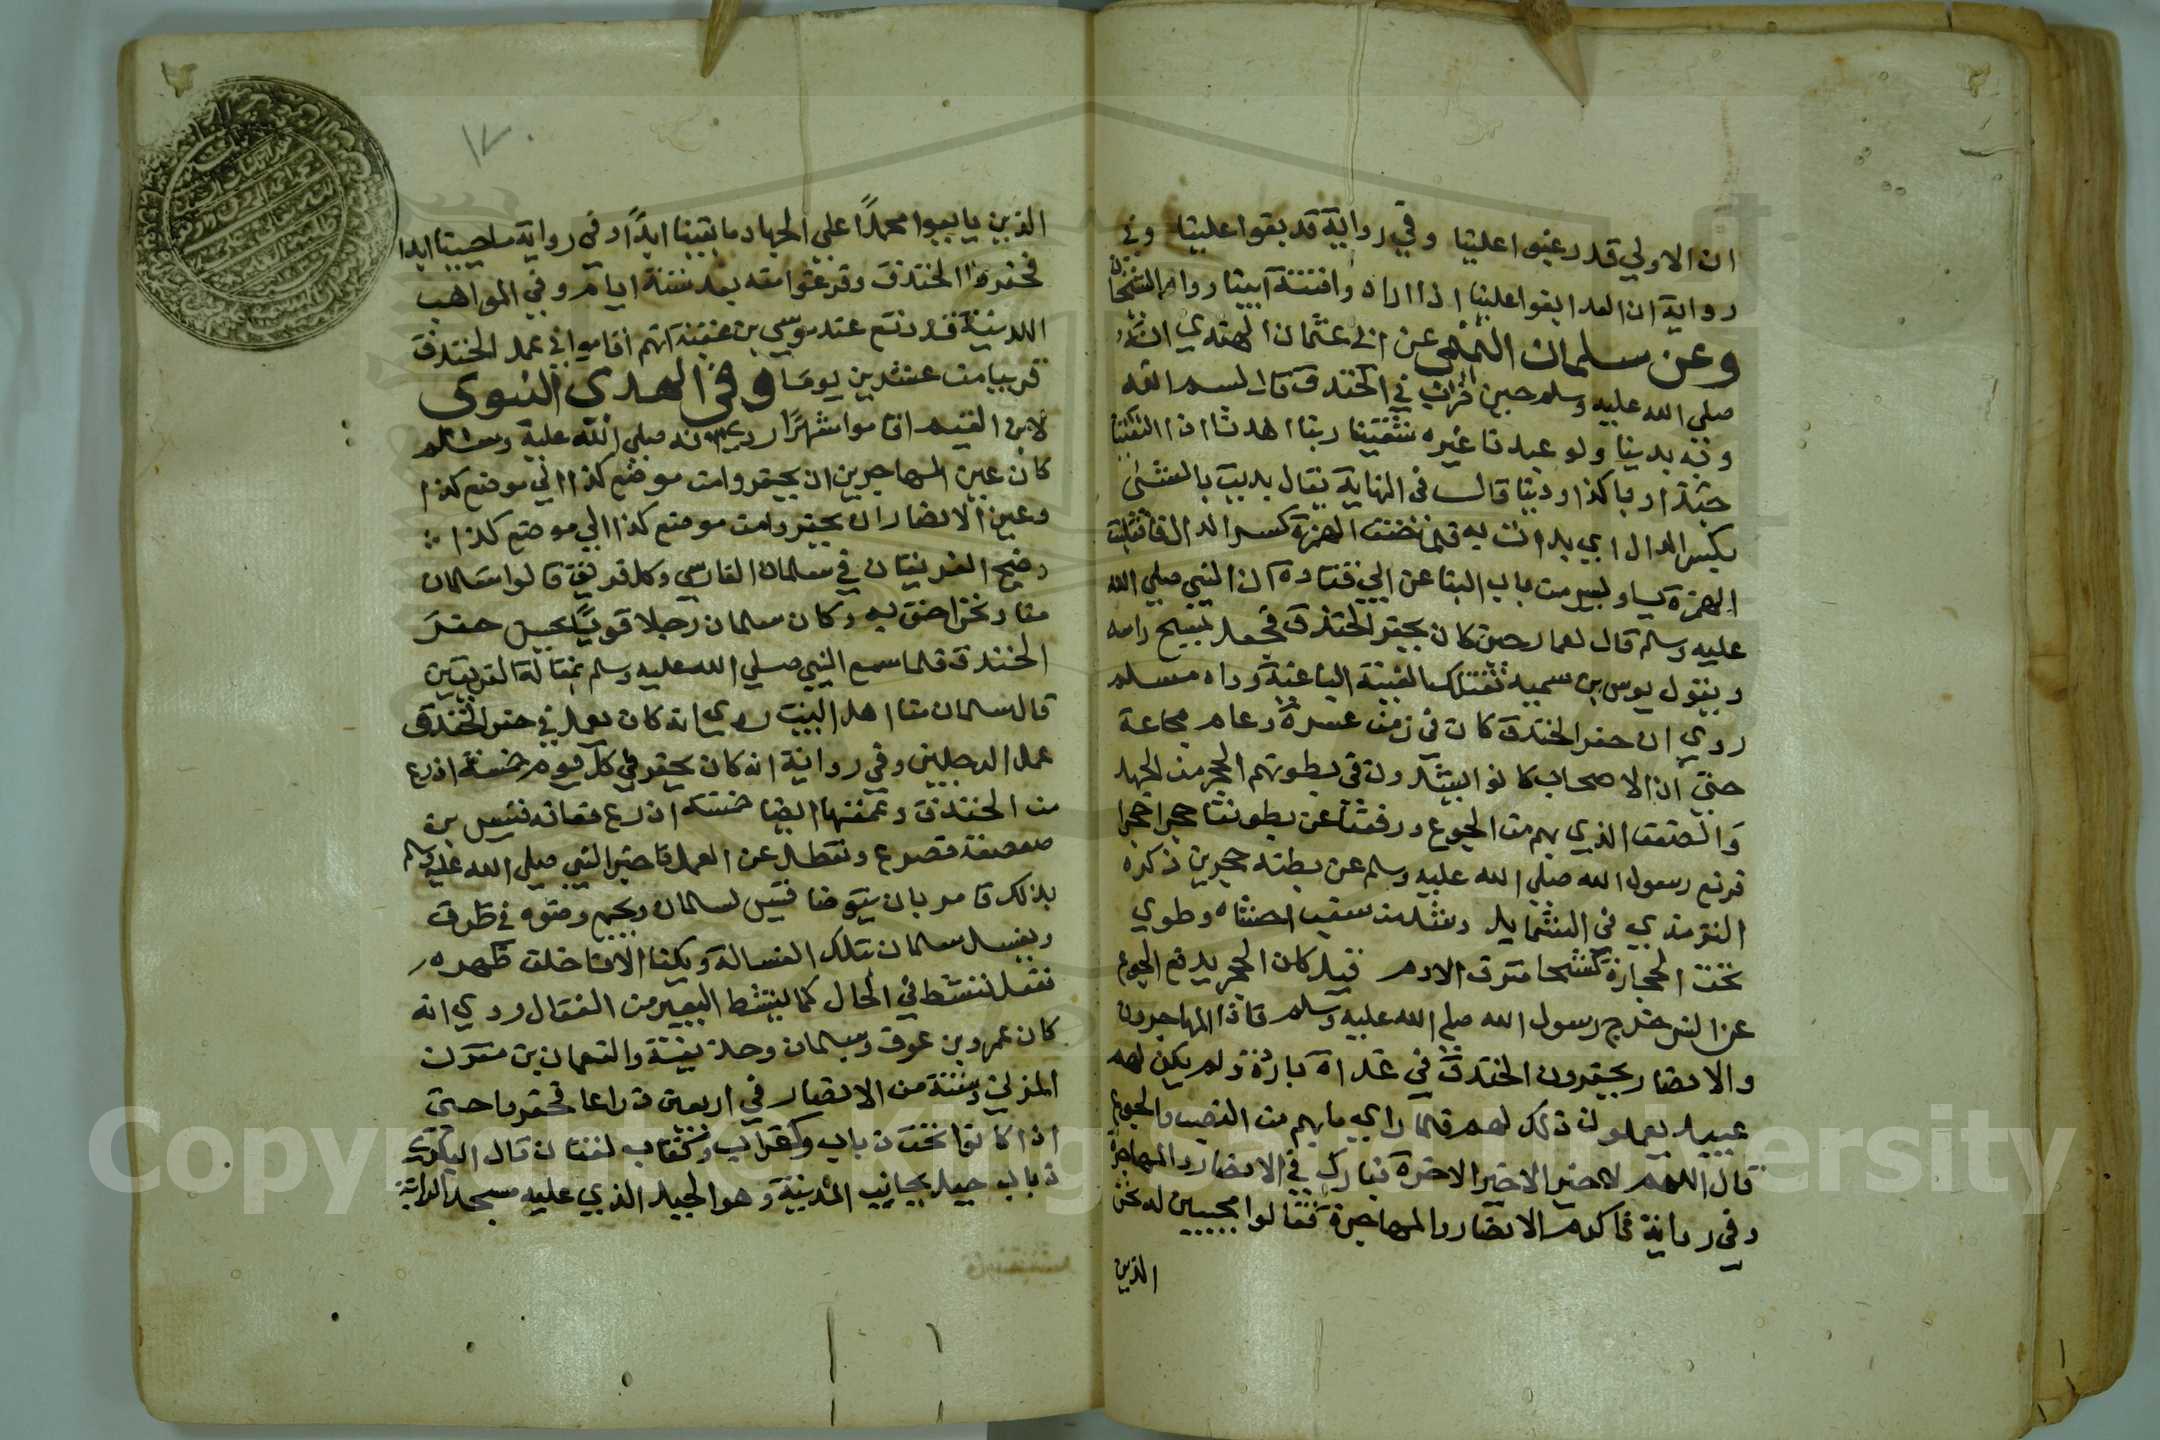 ان الاولي قد رغبوا علينا وفي رواية قد بغوا علينا وفي
رواية ان العدا بغوا علينا اذا اراد وافتنة ابينا رواه الشيخان
وعن سلمان التيمي عن ابي عثمان النهدي انه
صلى الله عليه وسلم حين ضرب في الخندق قال بسم الله
وبه بدينا ولو عبدنا غيره شقينا ربنا اهدنا اذا
حبذا ربا كذا ودينا قال في النهاية يقال بديت بالشئ
بكسر الدال اي بدات به فلما خفف الهمزة كسر الدال فانقلبت
الهمزة يا وليس من باب اليا عن ابي قتادة ان النبي صلي الله
عليه وسلم قال لعمار حين كان يحفر الخندق فجعل يمسح راسه
ويقول بوس بن سمية تقتلك الفئة الباغية رواه مسلم
روي ان حفر الخندق كان في زمن عسرة وعام مجاعة
حتي ان الاصحاب كانوا يشدون في بطونهم الحجر من الجهد
والضعف الذي بهم من الجوع ورفعنا عن بطوننا حجرا حجرا
فرفع رسول الله صلي الله عليه وسلم عن بطنه حجرين ذكره
الترمذي في الشمايل وشد من سغب احشاه وطوي
تحت الحجارة كشحا مترف الادم قيل كان الحجر يدفع الجوع
عن انس خرج رسول الله صلي الله عليه وسلم فاذا المهاجرون
والانصار يحفرون الخندق في غداة باردة ولم يكن لهم
عبيد يعملون ذلك لهم فلما راي ما بهم من النصب والجوع
قال اللهم لا خير الا خير الاخرة فبارك في الانصار والمهاجرة
وفي رواية فاكرم الانصار والمهاجرة فقالوا مجيبين له نحن
الذين
١٧٠
الذين بايعوا محمدا علي الجهاد ما بقينا ابدا وفي رواية ما حيينا ابدا
فحفروا الخندق وفرغوا منه بعد ستة ايام وفي المواهب
اللدنية قد وقع عند موسي بن عقبة انهم اقاموا في عمل الخندق
قريبا من عشرين يوما وفي الهدي النبوي
لابن القيم اقاموا شهرا روي انه صلي الله عليه وسلم
كان عين المهاجرين ان يحفروا من موضع كذا الي موضع كذا
وعين الانصار ان يحفروا من موضع كذا الي موضع كذا
الفريقان في سلمان الفارسي وكل فريق قالوا سلمان
منا ونحن احق به وكان سلمان رجلا قويا يحسن حفر
الخندق فلما سمع النبي صلي الله عليه وسلم بمقالة الفريقين
قال سلمان منا اهل البيت روي انه كان يعمل في حفر الخندق
عمل الرجلين وفي رواية انه كان يحفر في كل يوم خمسة اذرع
من الخندق وعمقها ايضا خمسة اذرع فعانه قيس بن
صعصعة فصرع وتعطل عن العمل فاخبر النبي صلي الله عليه وسلم
بذلك فامر بان يتوضا قيس لسلمان ويجمع وضوه في ظرف
ويغسل سلمان بتلك الغسالة ويكفا الانا خلف ظهره
ففعل فنشط في الحال كما ينشط البعير من العقال وروي انه
كان عمرو بن عوف وسلمان وحذيفة والنعمان بن مقرن
المزني وستة من الانصار في اربعين ذراعا فحفروا حتي
اذا كانوا تحت ذباب قال البكري
ذباب جبل بجانب المدينة وهو الجبل الذي عليه مسجد الراية